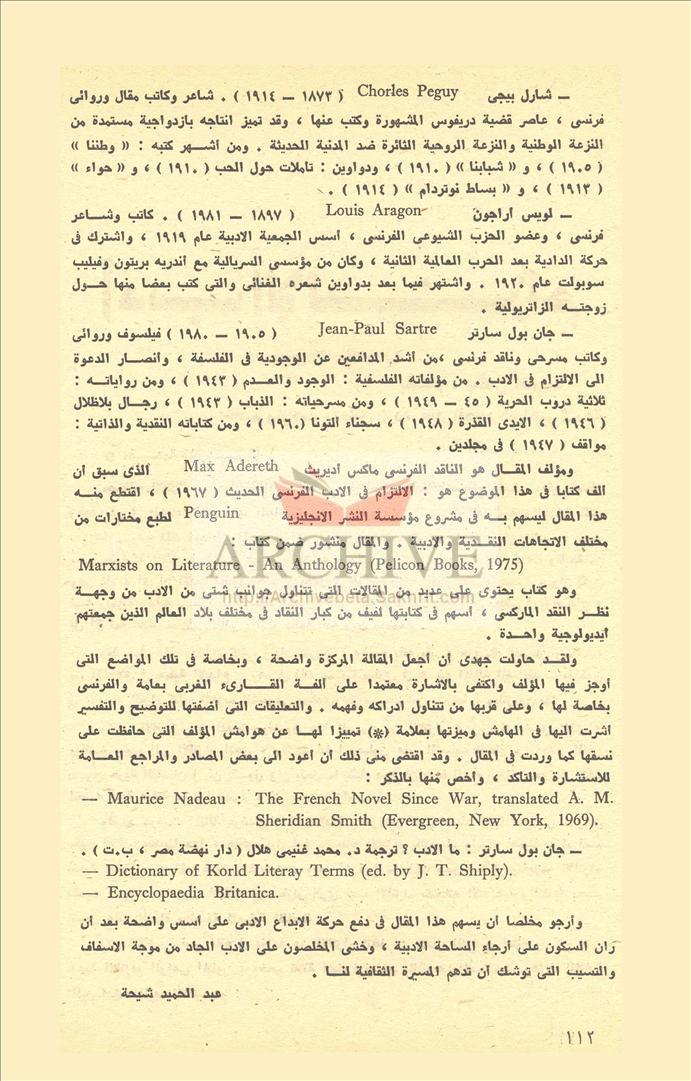 — شارل بيجى Chorles Peguy ( ١٨٧٣ — ١٩١٤ ) . شاعر وكاتب مقال وروائى
فرنسى ، عاصر قضية دريفوس المشهورة وكتب عنها ، وقد تميز انتاجه بازدواجية مستمدة من
النزعة الوطنية والنزعة الروحية الثائرة ضد المدنية الحديثة . ومن أشـــهر كتبه : « وطننا »
( ١٩٠٥ ) ، و « شبابنا » ( ١٩١٠ ) ، ودواوين : تاملات حول الحب ( ١٩١٠ ) ، و « حواء »
( ١٩١٣ ) ، و « بساط نوتردام » ( ١٩١٤ ) .
— لويس أراجون Louis Aragon ( ١٨٩٧ — ١٩٨١ ) . كاتب وشــاعر
فرنسى ، وعضو الحزب الشيوعى الفرنسى ، أسس الجمعية الادبية عام ١٩١٩ ، واشترك فى
حركة الدادية بعد الحرب العالمية الثانية ، وكان من مؤسسى السريالية مع أندريه بريتون وفيليب
سوبولت عام ١٩٢٠ . واشتهر فيما بعد بدواوين شعره الغنائى والتى كتب بعضا منها حــول
زوجتــه الزاتريولية .
— جان بول سارتر Jean-Paul Sartre ( ١٩٠٥ — ١٩٨٠ ) فيلسوف وروائى
وكاتب مسرحى وناقد فرنسى ،من أشد المدافعين عن الوجودية فى الفلسفة ، وأنصــار الدعوة
الى الالتزام فى الادب . من مؤلفاته الفلسفية : الوجود والعــدم ( ١٩٤٣ ) ، ومن رواياتــه :
ثلاثية دروب الحرية ( ٤٥ — ١٩٤٩ ) ، ومن مسرحياته : الذباب ( ١٩٤٣ ) ، رجــال بلاظلال
( ١٩٤٦ ) ، الايدى القذرة ( ١٩٤٨ ) ، سجناء التونا ( ١٩٦٠ ) ، ومن كتاباته النقدية والذاتية :
مواقف ( ١٩٤٧ ) فى مجلدين .
ومؤلف المقــال هو الناقد الفرنسى ماكس أديريث Max Adereth الذى سبق أن
ألف كتابا فى هذا الموضوع هو : الالتزام فى الادب الفرنسى الحديث ( ١٩٦٧ ) ، اقتطع منــه
هذا المقال ليسهم بــه فى مشروع مؤسسة النشر الانجليزية Penguin لطبع مختارات من
مختلف الاتجاهات النقــدية والادبية . والمقال منشور ضمن كتاب :
Marxists on Literature - An Anthology (Pelicon Books, 1975)
وهو كتاب يحتوى على عديد من المقالات التى تتناول جوانب شتى من الادب من وجهــة
نظــر النقد الماركسى ، أسهم فى كتابتها لفيف من كبار النقاد فى مختلف بلاد العالم الذين جمعتهم
أيديولوجية واحــدة .
ولقــد حاولت جهدى أن أجعل المقالة المركزة واضحة ، وبخاصة فى تلك المواضع التى
أوجز فيها المؤلف واكتفى بالاشارة معتمدا على ألفــة القــارىء الغربى بعامة والفرنسى
بخاصة لها ، وعلى قربها من تتناول ادراكه وفهمه . والتعليقات التى أضفتها للتوضيح والتفسير
أشرت اليها فى الهامش وميزتها بعلامة (*) تمييزا لهــا عن هوامش المؤلف التى حافظت على
نسقها كما وردت فى المقال . وقد اقتضى منى ذلك أن أعود الى بعض المصادر والمراجع العــامة
للاستشارة والتأكد ، وأخص منها بالذكر :
— Maurice Nadeau : The French Novel Since War, translated A. M.
Sheridian Smith (Evergreen, New York, 1969).
— جان بول سارتر : ما الادب ؟ ترجمة د. محمد غنيمى هلال ( دار نهضة مصر ، ب.ت ) .
— Dictionary of Korld Literay Terms (ed. by J. T. Shiply).
— Encyclopaedia Britanica.
وأرجو مخلصا أن يسهم هذا المقال فى دفع حركة الابداع الادبى على أسس واضحة بعد أن
ران السكون على أرجاء الساحة الادبية ، وخشى المخلصون على الادب الجاد من موجة الاسفاف
والتسيب التى توشك أن تدهم المسيرة الثقافية لنــا .
عبد الحميد شيحة
١١٢
ARCHIVE
http://Archivebeta.Sakhrit.com